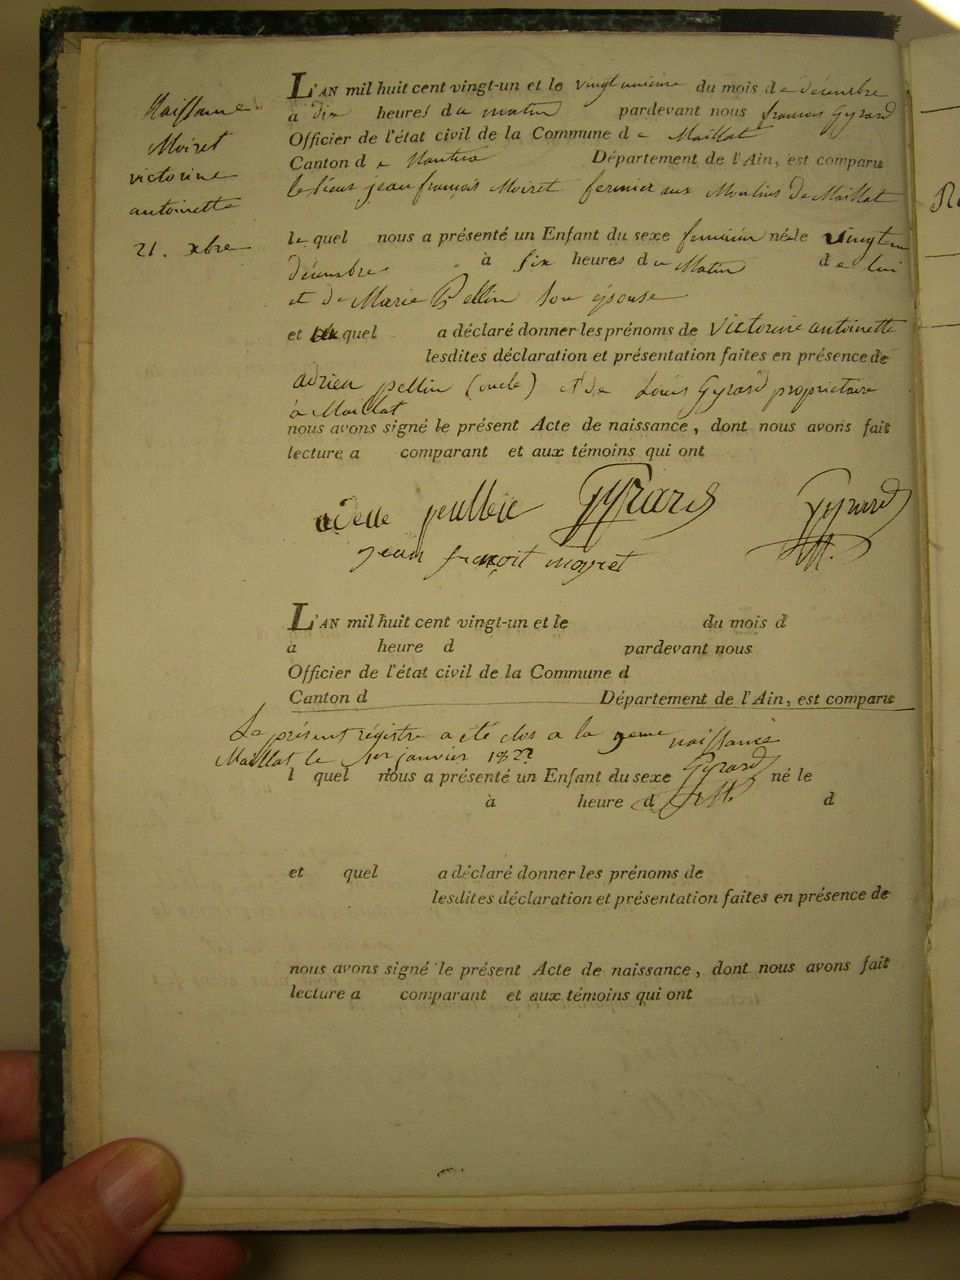 Naissance
Moiret
victorine
antoinette
21. xbre
L'AN mil huit cent vingt-un et le vingt unieme du mois de décembre
a dix heures du matin pardevant nous françois Gyrard
Officier de l'état civil de la Commune de Maillat
Canton de Nantua Département de l'Ain, est comparu
le sieur jean françois Moiret fermier aux Moulins De Maillat
le quel nous a présenté un Enfant du sexe feminin né le vingt un
décembre à six heures du Matin de lui
et De Marie Pellin son épouse
et quel a déclaré donner les prénoms de Victorine antoinette
lesdites déclaration et présentation faites en présence de
adrien pellin (oncle) et De Louis Gyrard propriétaire
à Maillat
nous avons signé le présent Acte de naissance, dont nous avons fait
lecture a comparant et aux témoins qui ont
Gyrard Gyrard
jean françoit moyret M.
L'AN mil huit cent vingt-un et le du mois d
à heure d pardevant nous
Officier de l'état civil de la Commune d
Canton d Département de l'Ain, est comparu
Le présent régistre a été clos a la 9eme naissance
Maillat le 1er janvier 1822
l quel nous a présenté un Enfant du sexe Gyrard né le
à heure d M. d
et quel a déclaré donner les prénoms de
lesdites déclaration et présentation faites en présence de
nous avons signé le présent Acte de naissance, dont nous avons fait
lecture a comparant et aux témoins qui ont